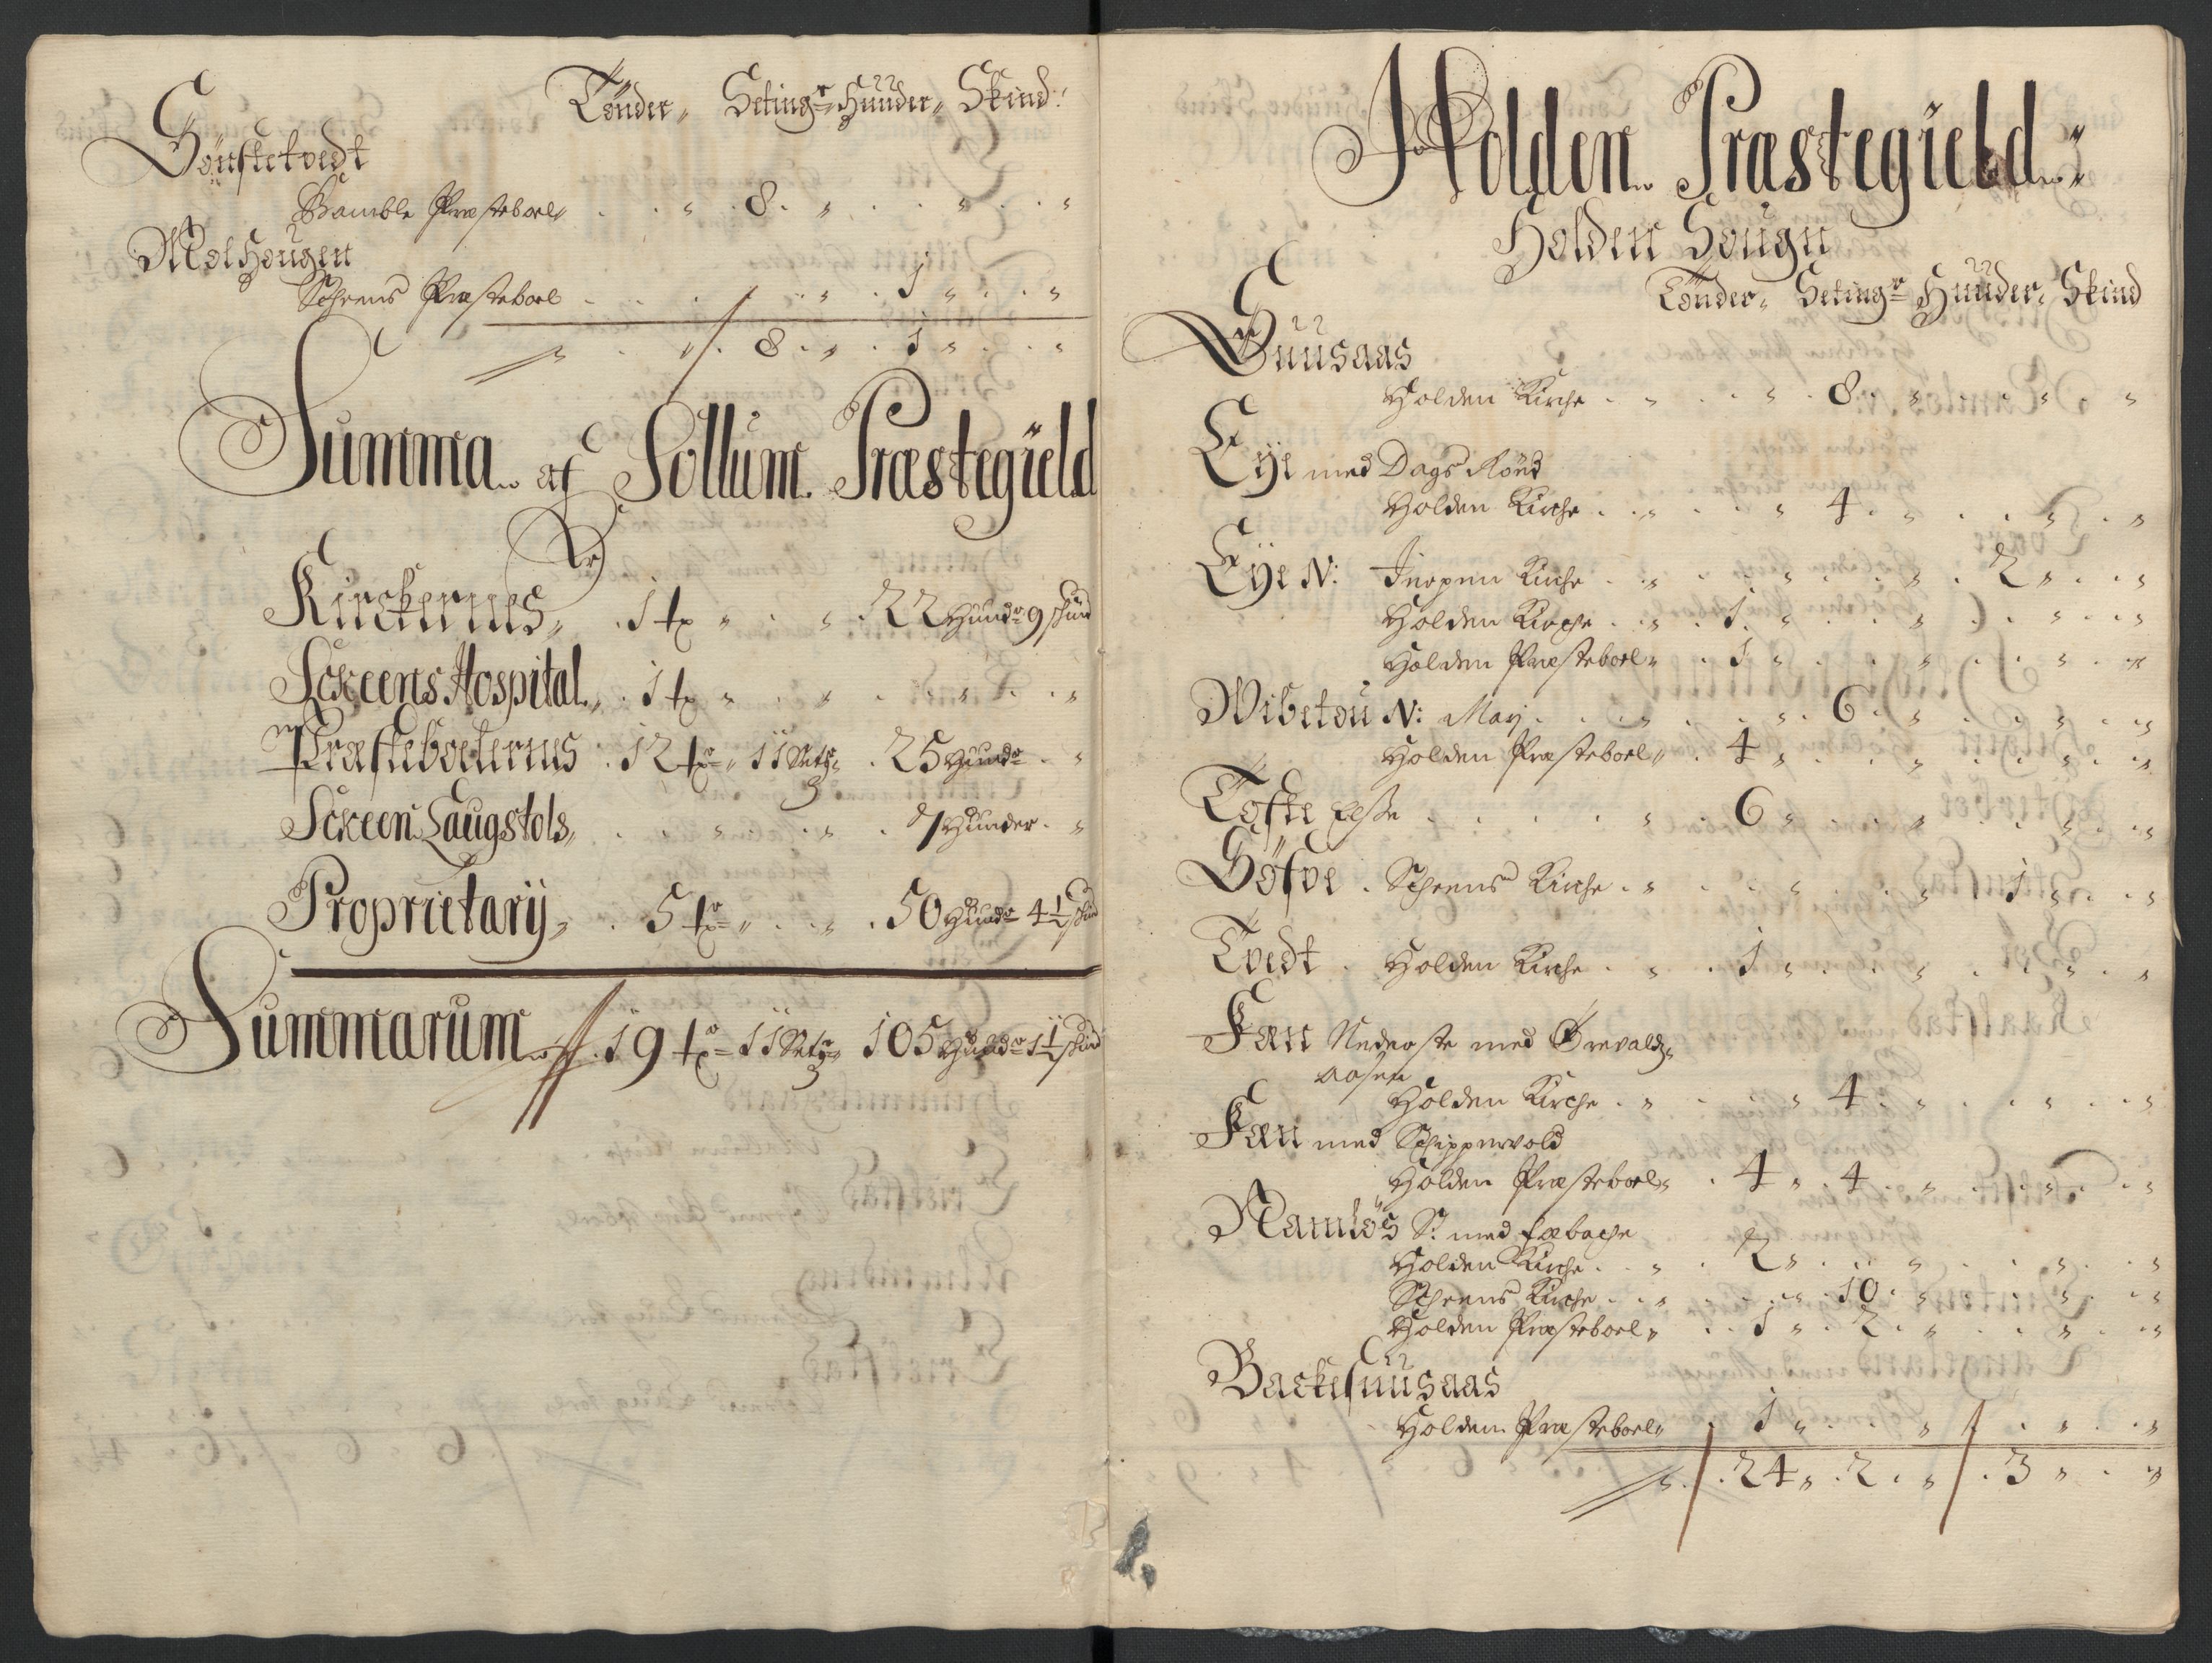 Tönder„ Seting:r Huuder„ Skind:
Sönstetvedt
Bamble Præsteboel„ . . „ . 8 . „ . . . „ . . „
Molhougen
Scheens Præsteboel . . . . . . „ . 1 „ . . „
„ . „ . 8 . „ . 1 „ . . „
Summa af Sollum Præstegield
Kirckernes„ . 1 tr „ . „ . 22 Huud:r 9 skind
Scheens Hospital„ . 1 tr „ . „ . . „ . . „
Præsteboelernes . 12 tr „ 11 Setr„ . 25 Huud:r . „
Scheen Laugstols„ . . „ . . „ . 7 Huuder . „
Proprietarÿ„ . 5 tr „ . . „ . 50 Huud:r 4½ skind
Summarum . 19 tr 11 Setr„ 105 Huud:r 1½ skind
Holden Præstegield„
Holden Sougn
Tönder„ Seting:r Huuder„ Skind
Suusaas
Holden Kirche . „ . . „ . 8 . „ . . „ . „
Eÿe med Dags Rönd
Holden Kirche . . „ . . „ 4 . „ . . „ . „
Eÿe N: Inopen Kirche . . „ . . „ . . „ . 2 „ . . „
Holden Kirche . . „ . 1 . „ . . „ . . „ . . „
Holden Præsteboel„ . 1 „ . . . „ . . „ . „
Wibetou N: Marj . . . „ . . „ . 6 . „ . . „ . . „
Holden Præsteboel„ . 4 „ . . . „ . . „ . „
Tofte Else . . . . „ . 6 „ . . . „ . . „ . . „
Göfve . Scheens Kirche . „ . . „ . . . „ . 1 „ . . „
Tvedt . Holden Kirche . . „ . 1 „ . . . „ . . „ . „
Fæn Nederste med Ørevalds
aasen
Holden Kirche . „ . . „ 4 . „ . . „ . . „
Fæn med Schippervold
Holden Præsteboel„ . 4 „ . 4 . „ . . „ . . „
Namløs S: med Fæbache
Holden Kirche . . „ . 2 „ . . . „ . . „ . . „
Scheens Kirche . . „ . . . „ . 10 . „ . . „ . . „
Holden Præsteboel„ . . 1 „ . 2 . „ . . „ . . „
Backesuusaas
Holden Præsteboel„ . 1 „ . . . „ . . „ . . „
„ . 24 „ . 2 . „ . 3 „ . . „